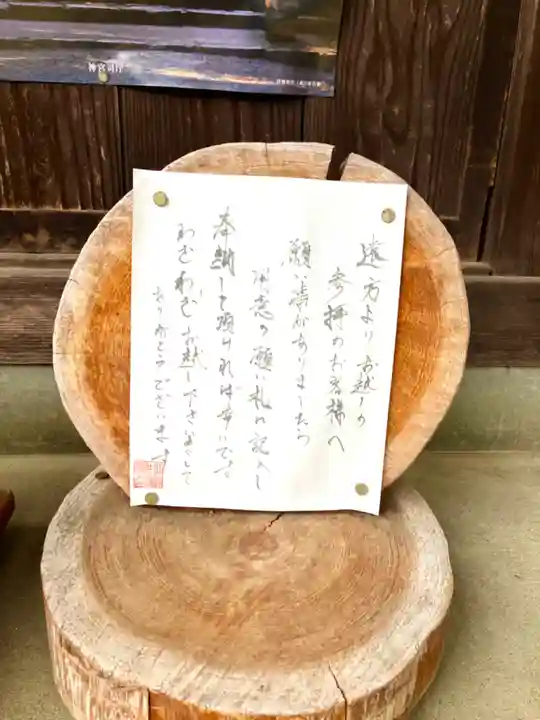 神宮司庁
遠方よりお越しの
参拝のお客様へ
願い事がありましたら
用意の願い札に記入し
奉納して頂ければ幸いです。
わざわざお越し下さいまして
ありがとうございます